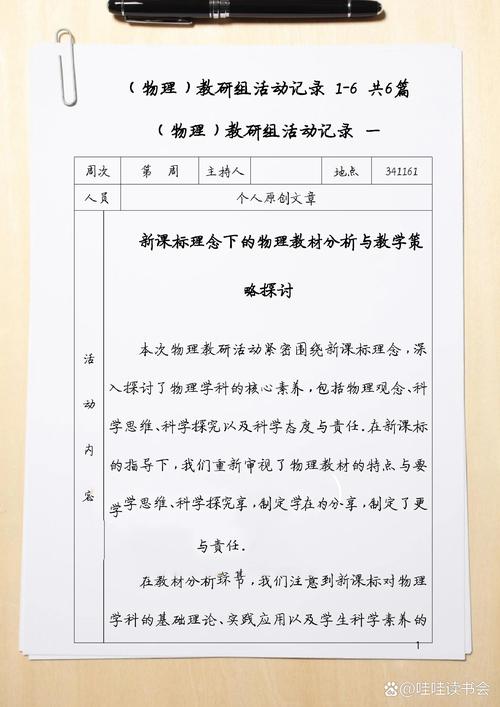 （物理）教研组活动记录 1-6 共6篇
（物理）教研组活动记录 一
周次 第 周 主持人 地点 341161
人员 个人原创文章
新课标理念下的物理教材分析与教学策
略探讨
活动内容
本次物理教研活动紧密围绕新课标理念，深
入探讨了物理学科的核心素养，包括物理观念、科
学思维、科学探究以及科学态度与责任.在新课标
的指导下，我们重新审视了物理教材的特点与要
学学思维、科学探究享，制定学在为分享，制定了更
与责任.
在教材分析环节，我们注意到新课标对物理
学科的基础理论、实践应用以及学生科学素养的
1
哇哇读书会